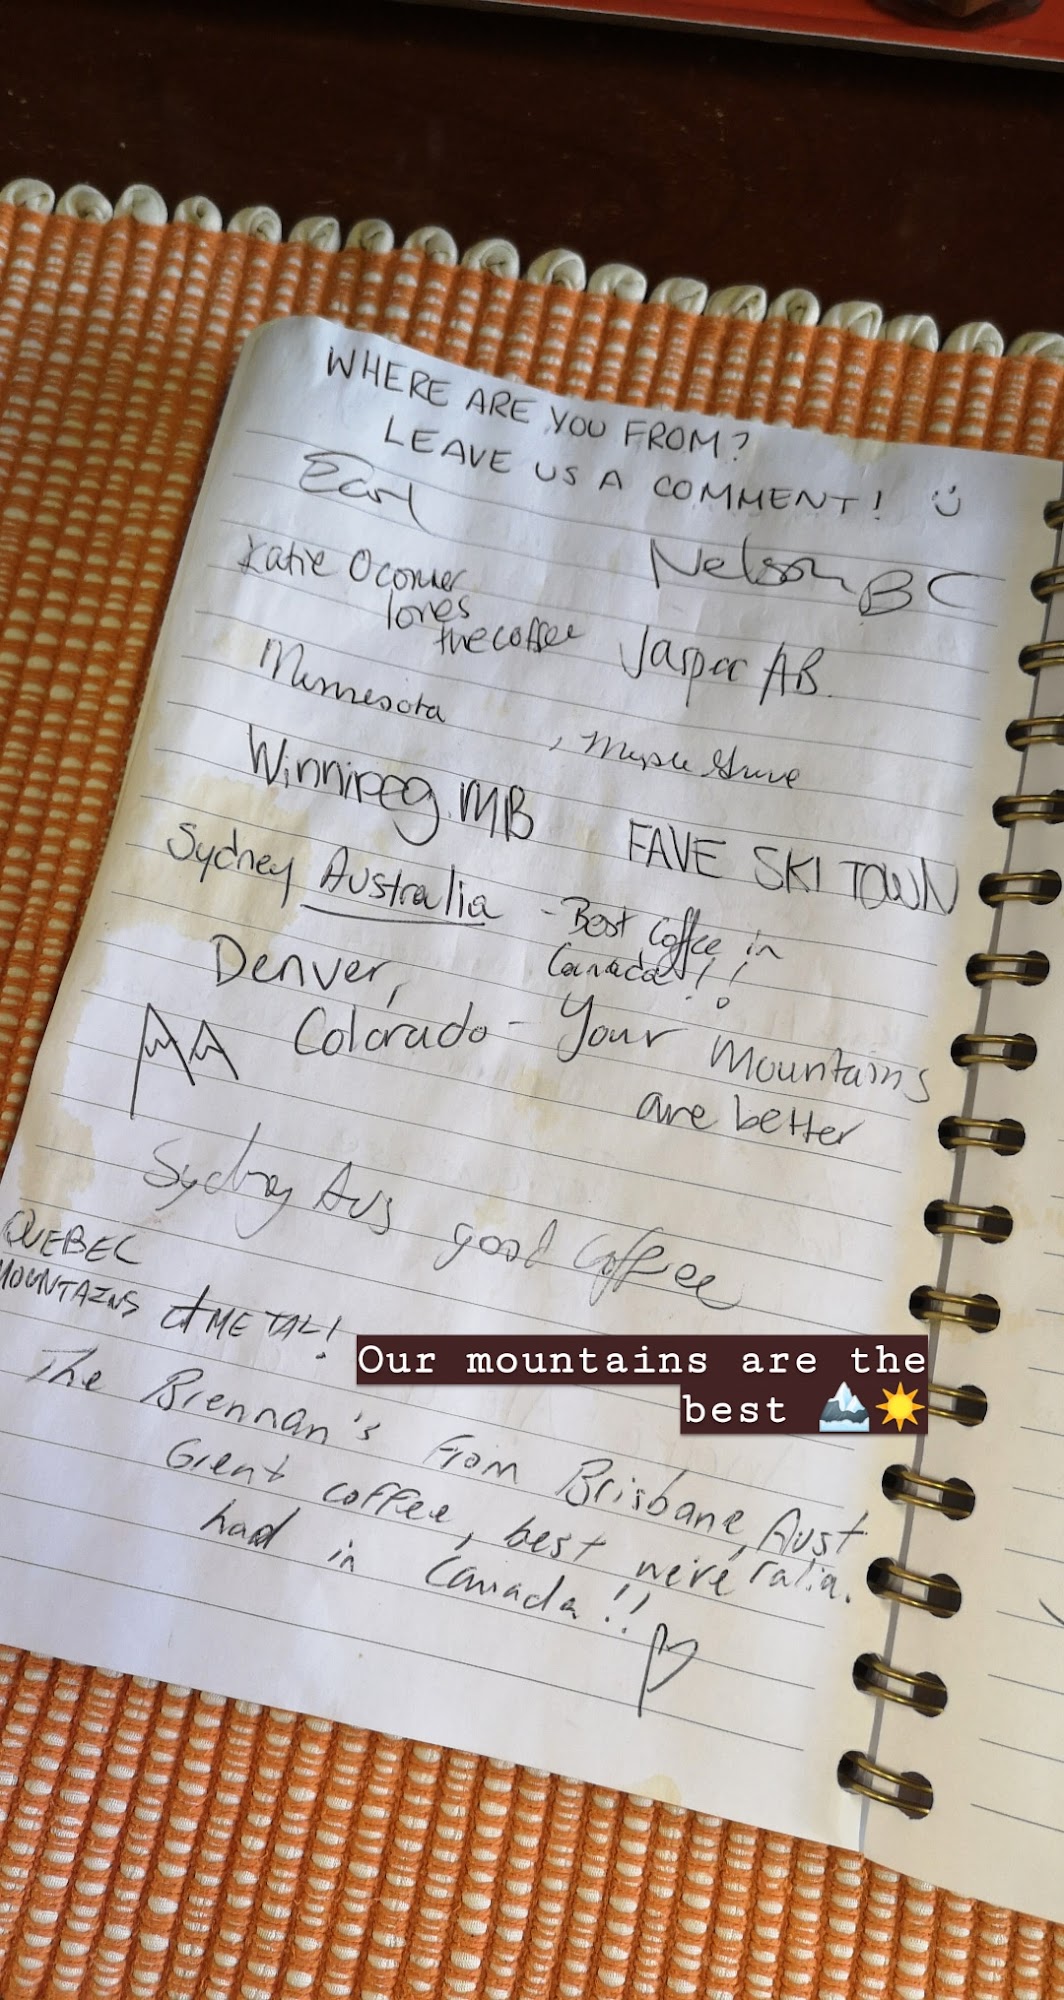 WHERE ARE YOU FROM?
LEAVE US A COMMENT! :)
Earl
Nelson BC
Katie Oconner
loves
the coffee
Jasper AB.
Minnesota
, Maple Grove
Winnipeg MB
FAVE SKI TOWN
Sydney Australia
- Best Coffee in
Canada!!
Denver,
Colorado - Your mountains
are better
Sydney Aus good Coffee
QUEBEC
MOUNTAINS & METAL!
Our mountains are the
best 🏔️☀️
The Brennan's From Brisbane, Aust
ralia.
Great coffee, best we've
had in Canada!!